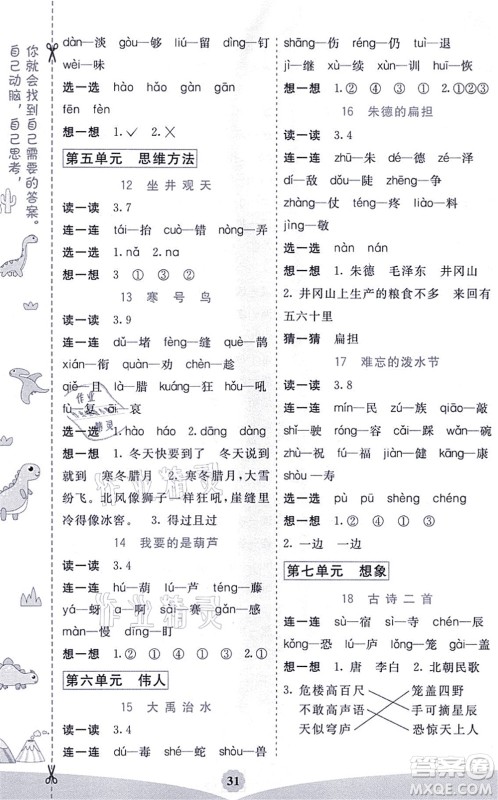 你就会找到自己需要的答案。
自己动脑,自己思考,
dàn—淡 gòu—够 liú—留 dìng—钉
wèi—味
选一选 hào hǎo gàn gān
fēn fèn
想一想 1.✓ 2.✗
第五单元 思维方法
12 坐井观天
读一读 3.7
连一连 tái—抬 cuò—错 nòng—弄
选一选 1.nǎ 2.na
想一想 3 ① ③ ②
13 寒号鸟
读一读 3.9
连一连 dǔ—堵 fèng—缝 què—鹊
xián—衔 kuàng—旷 chèn—趁
qiě—且 là—腊 kuáng—狂 hǒu—吼
fù—复 āi—哀
选一选 1.hào háo 2.dāng dàng
想一想 1.冬天快要到了 冬天说到
就到 寒冬腊月 2.寒冬腊月,大雪
纷飞。北风像狮子一样狂吼,崖缝里
冷得像冰窖。 3.得过且过
14 我要的是葫芦
连一连 hú—葫 lú—芦 téng—藤
yá—蚜 a—啊 sài—赛 gǎn—感
màn—慢 dīng—盯
想一想 1.② ④ ① ④ ② 2.①
第六单元 伟人
15 大禹治水
读一读 3.4
连一连 dú—毒 shé—蛇 shòu—兽
shāng—伤 réng—仍 tuì—退
jì—继 xù—续 xùn—训 huī—恢
想一想 1.② ④ ① ③ 2.①②
16 朱德的扁担
读一读 3.4
连一连 zhū—朱 dé—德 zhèn—阵
zhàng—仗 tuí—颓 téng—疼 liào—料
jìng—敬
选一选 nàn nán
想一想 1.朱德 毛泽东 井冈山
2.井冈山上生产的粮食不多 来回有
五六十里
猜一猜 扁担
17 难忘的泼水节
读一读 3.8
连一连 mín—民 zú—族 gǔ—鼓
shǐ—驶 róng—容 cǎi—踩 wǎn—碗
zhù—祝 fú—福 jiàn—健 kāng—康
shòu—寿
选一选 pù pū shèng chéng
想一想 1.② ④ ① ③
2.一边 一边
第七单元 想象
18 古诗二首
连一连 sù—宿 sì—寺 chén—辰
kǒng—恐 sì—似 lú—庐 lǒng—笼
gài—盖 cāng—苍 máng—茫
想一想 1.唐 李白 2.北朝民歌
3. 危楼高百尺 笼盖四野
不敢高声语 手可摘星辰
天似穹庐 恐惊天上人
31
作业精灵
答案圈
MXQE.COM